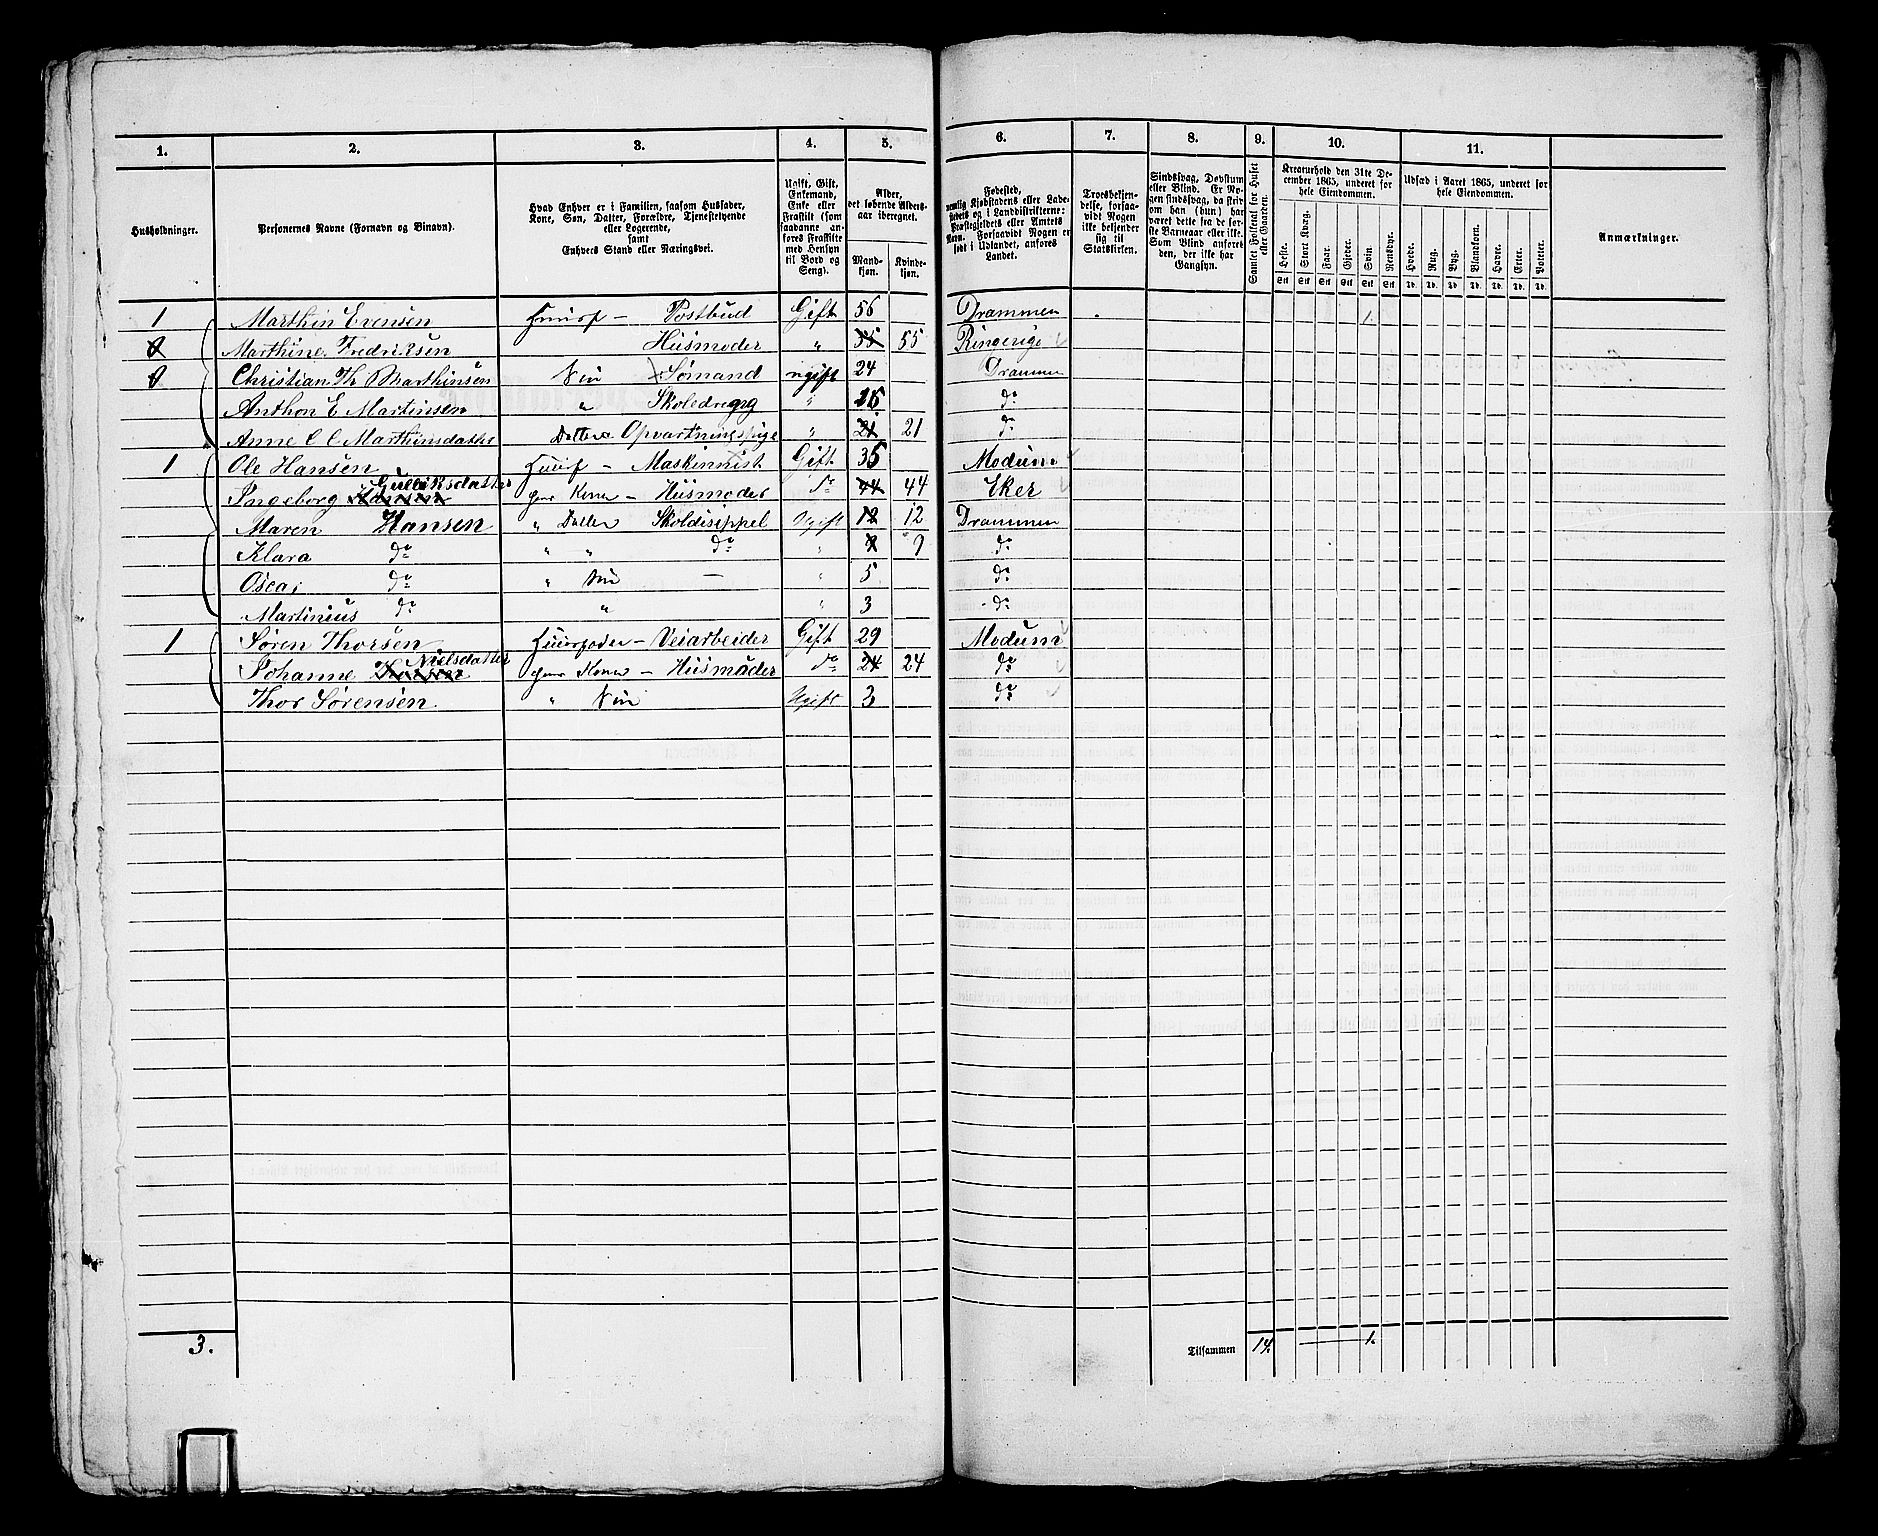 1. 2. 3. 4. 5. 6. 7. 8. 9. 10. 11.
Husholdninger.
Personernes Navne (Fornavn og Binavn).
Hvad Enhver er i Familien, saasom Husfader,
Kone, Søn, Datter, Forældre, Tjenestetyende
eller Logerende,
samt
Enhvers Stand eller Næringsvei.
Ugift, Gift,
Enkemand,
Enke eller
Fraskilt (som
saadanne an-
føres Fraskilte
med Hensyn
til Bord og
Seng).
Alder,
det løbende Alders-
aar iberegnet.
Mand-
kjøn.
Kvinde-
kjøn.
Fødested,
nemlig Kjøbstadens eller Lade-
stedets og i Landdistrikterne:
Præstegjeldets eller Amtets
Navn. Forsaavidt Nogen er
født i Udlandet, anføres
Landet.
Troesbekjen-
delse, forsaa-
vidt Nogen
ikke bekjender
sig til
Statskirken.
Sindssvag, Døvstum
eller Blind. Er No-
gen sindssvag, da skriv
om han (hun) har
været dette fra de før-
ste Barneaar eller ikke.
Som Blind anføres
den, der ikke har
Gangsyn.
Samlet Folketal for Huset
eller Gaarden.
Kreaturhold den 31te De-
cember 1865, underet for
hele Eiendommen.
Heste. Stort Kvæg. Faar. Gjeder. Svin. Rensdyr.
Stk Stk Stk Stk Stk Stk
Udsæd i Aaret 1865, underet for
hele Eiendommen.
Hvede. Rug. Byg. Blandkorn. Havre. Erter. Poteter.
Td. Td. Td. Td. Td. Td. Td.
Anmærkninger.
1 Marthin Evensen Postbud Gift 56 Drammen 1.
Marthine Fredriksen Husmoder " 55 55 Ringerige
Christian Th Marthinsen Søn Sømand ugift 24 Drammen
Anthon E Martinsen " Skoledreng " do
Anne C C Marthinsdatter Datter Opvartningspige " 21 21 do
1 Ole Hansen Husf - Maskinnist Gift 35 Modum
Gulliksdatter
Ingeborg Hansen hans Kone - Husmoder do 44 44 Eker
Maren Hansen " Datter Ugift 12 12 Drammen
Klara do " " do " 9 do
Oscar do " Søn - " 5 do
Martinius do " " 3 do
1 Søren Thorsen Husfader - Veiarbeider Gift 29 Modum
Nielsdatter
Johanne Thorsen hans Kone - Husmoder do 24 24 do
Thor Sørensen " Søn Ugift 3 do
3.
Tilsammen 14. 1.